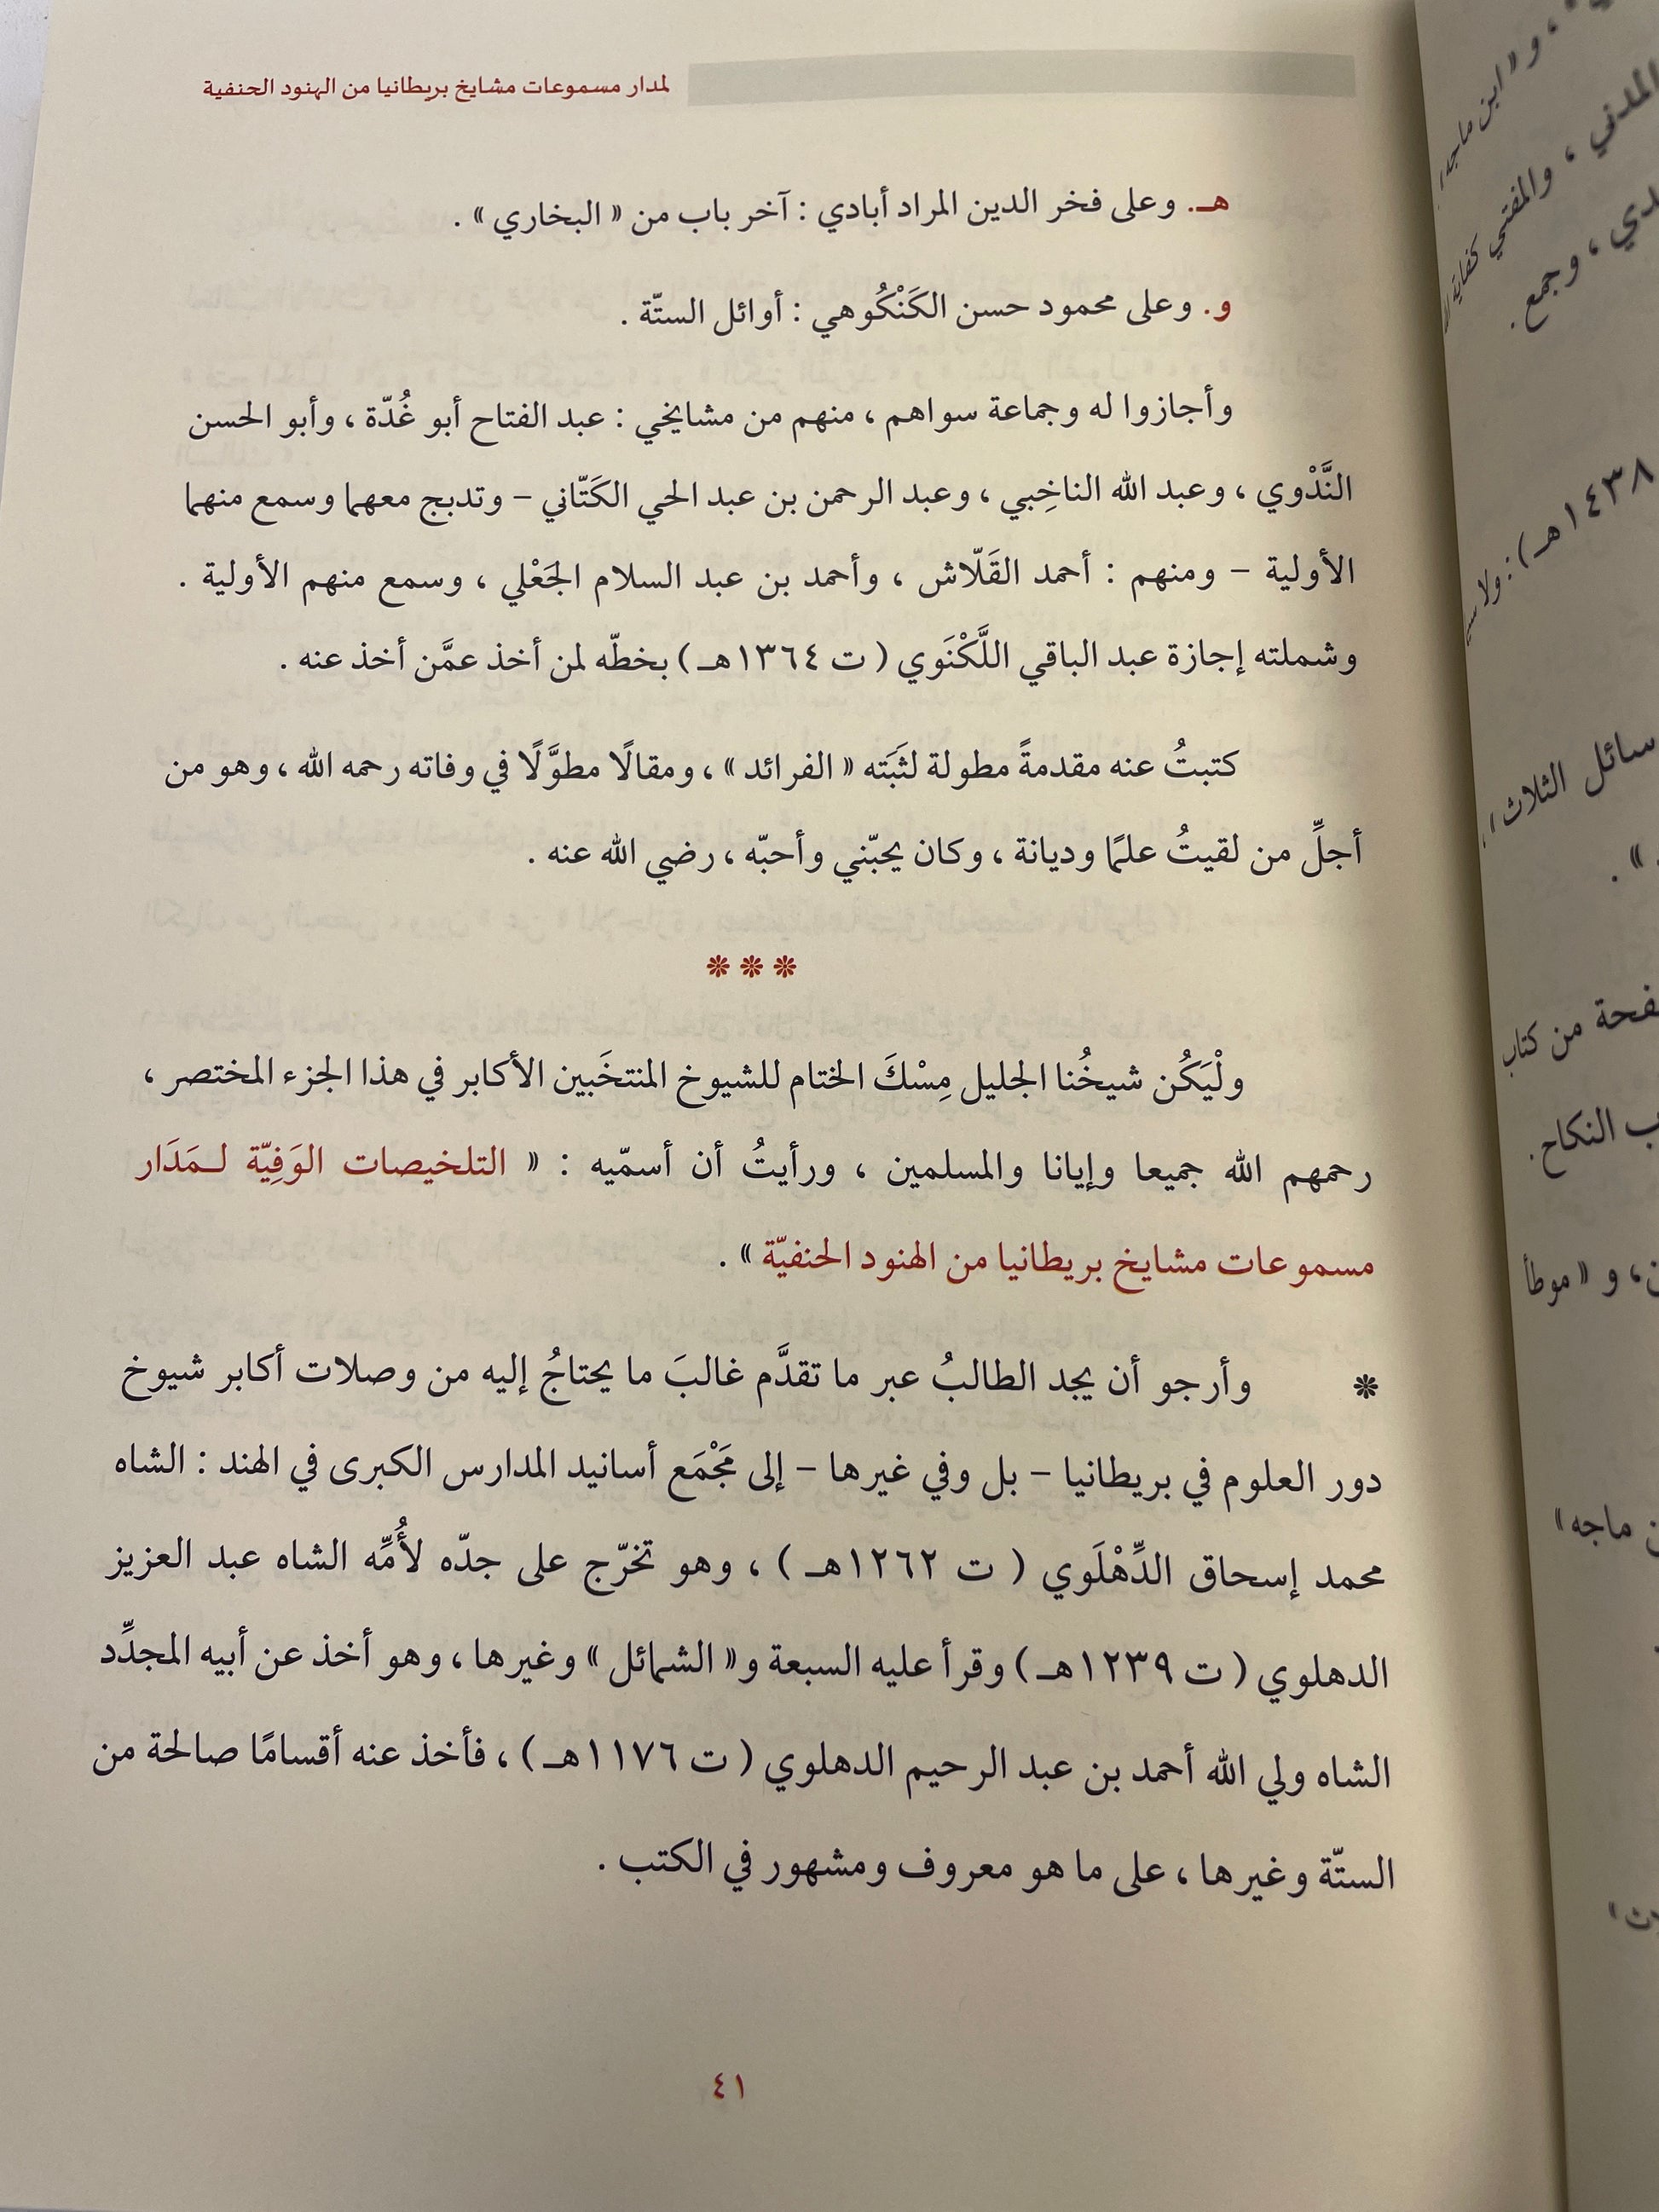 لمدار مسموعات مشايخ بريطانيا من الهنود الحنفية
هـ. وعلى فخر الدين المراد أبادي : آخر باب من « البخاري » .
و. وعلى محمود حسن الكَنْكُوهي : أوائل الستّة .
وأجازوا له وجماعة سواهم ، منهم من مشايخي : عبد الفتاح أبو غُدّة ، وأبو الحسن
النَّدْوي ، وعبد الله الناخِبي ، وعبد الرحمن بن عبد الحي الكَتّاني – وتدبج معهما وسمع منهما
الأولية – ومنهم : أحمد القَلّاش ، وأحمد بن عبد السلام الجَعْلي ، وسمع منهم الأولية .
وشملته إجازة عبد الباقي اللَّكْنَوي ( ت ١٣٦٤هـ ) بخطّه لمن أخذ عمَّن أخذ عنه .
كتبتُ عنه مقدمةً مطولة لثَبَته « الفرائد » ، ومقالًا مطوَّلًا في وفاته رحمه الله ، وهو من
أجلِّ من لقيتُ علمًا وديانة ، وكان يحبّني وأحبّه ، رضي الله عنه .
❊ ❊ ❊
ولْيَكُن شيخُنا الجليل مِسْكَ الختام للشيوخ المنتخَبين الأكابر في هذا الجزء المختصر ،
رحمهم الله جميعا وإيانا والمسلمين ، ورأيتُ أن أسمّيه : « التلخيصات الوَفِيّة لـمَدَار
مسموعات مشايخ بريطانيا من الهنود الحنفيّة » .
❊ وأرجو أن يجد الطالبُ عبر ما تقدَّم غالبَ ما يحتاجُ إليه من وصلات أكابر شيوخ
دور العلوم في بريطانيا – بل وفي غيرها – إلى مَجْمَع أسانيد المدارس الكبرى في الهند : الشاه
محمد إسحاق الدِّهْلَوي ( ت ١٢٦٢هـ ) ، وهو تخرّج على جدّه لأُمِّه الشاه عبد العزيز
الدهلوي ( ت ١٢٣٩هـ ) وقرأ عليه السبعة و« الشمائل » وغيرها ، وهو أخذ عن أبيه المجدِّد
الشاه ولي الله أحمد بن عبد الرحيم الدهلوي ( ت ١١٧٦هـ ) ، فأخذ عنه أقسامًا صالحة من
الستّة وغيرها ، على ما هو معروف ومشهور في الكتب .
٤١
، و« ابن ماجه
المدني ، والمفتي كفاية
وجمع .
١٤٣٨هـ ) : ولا
الثلاث
» .
من كتاب
النكاح .
، و « موطأ
ماجه »